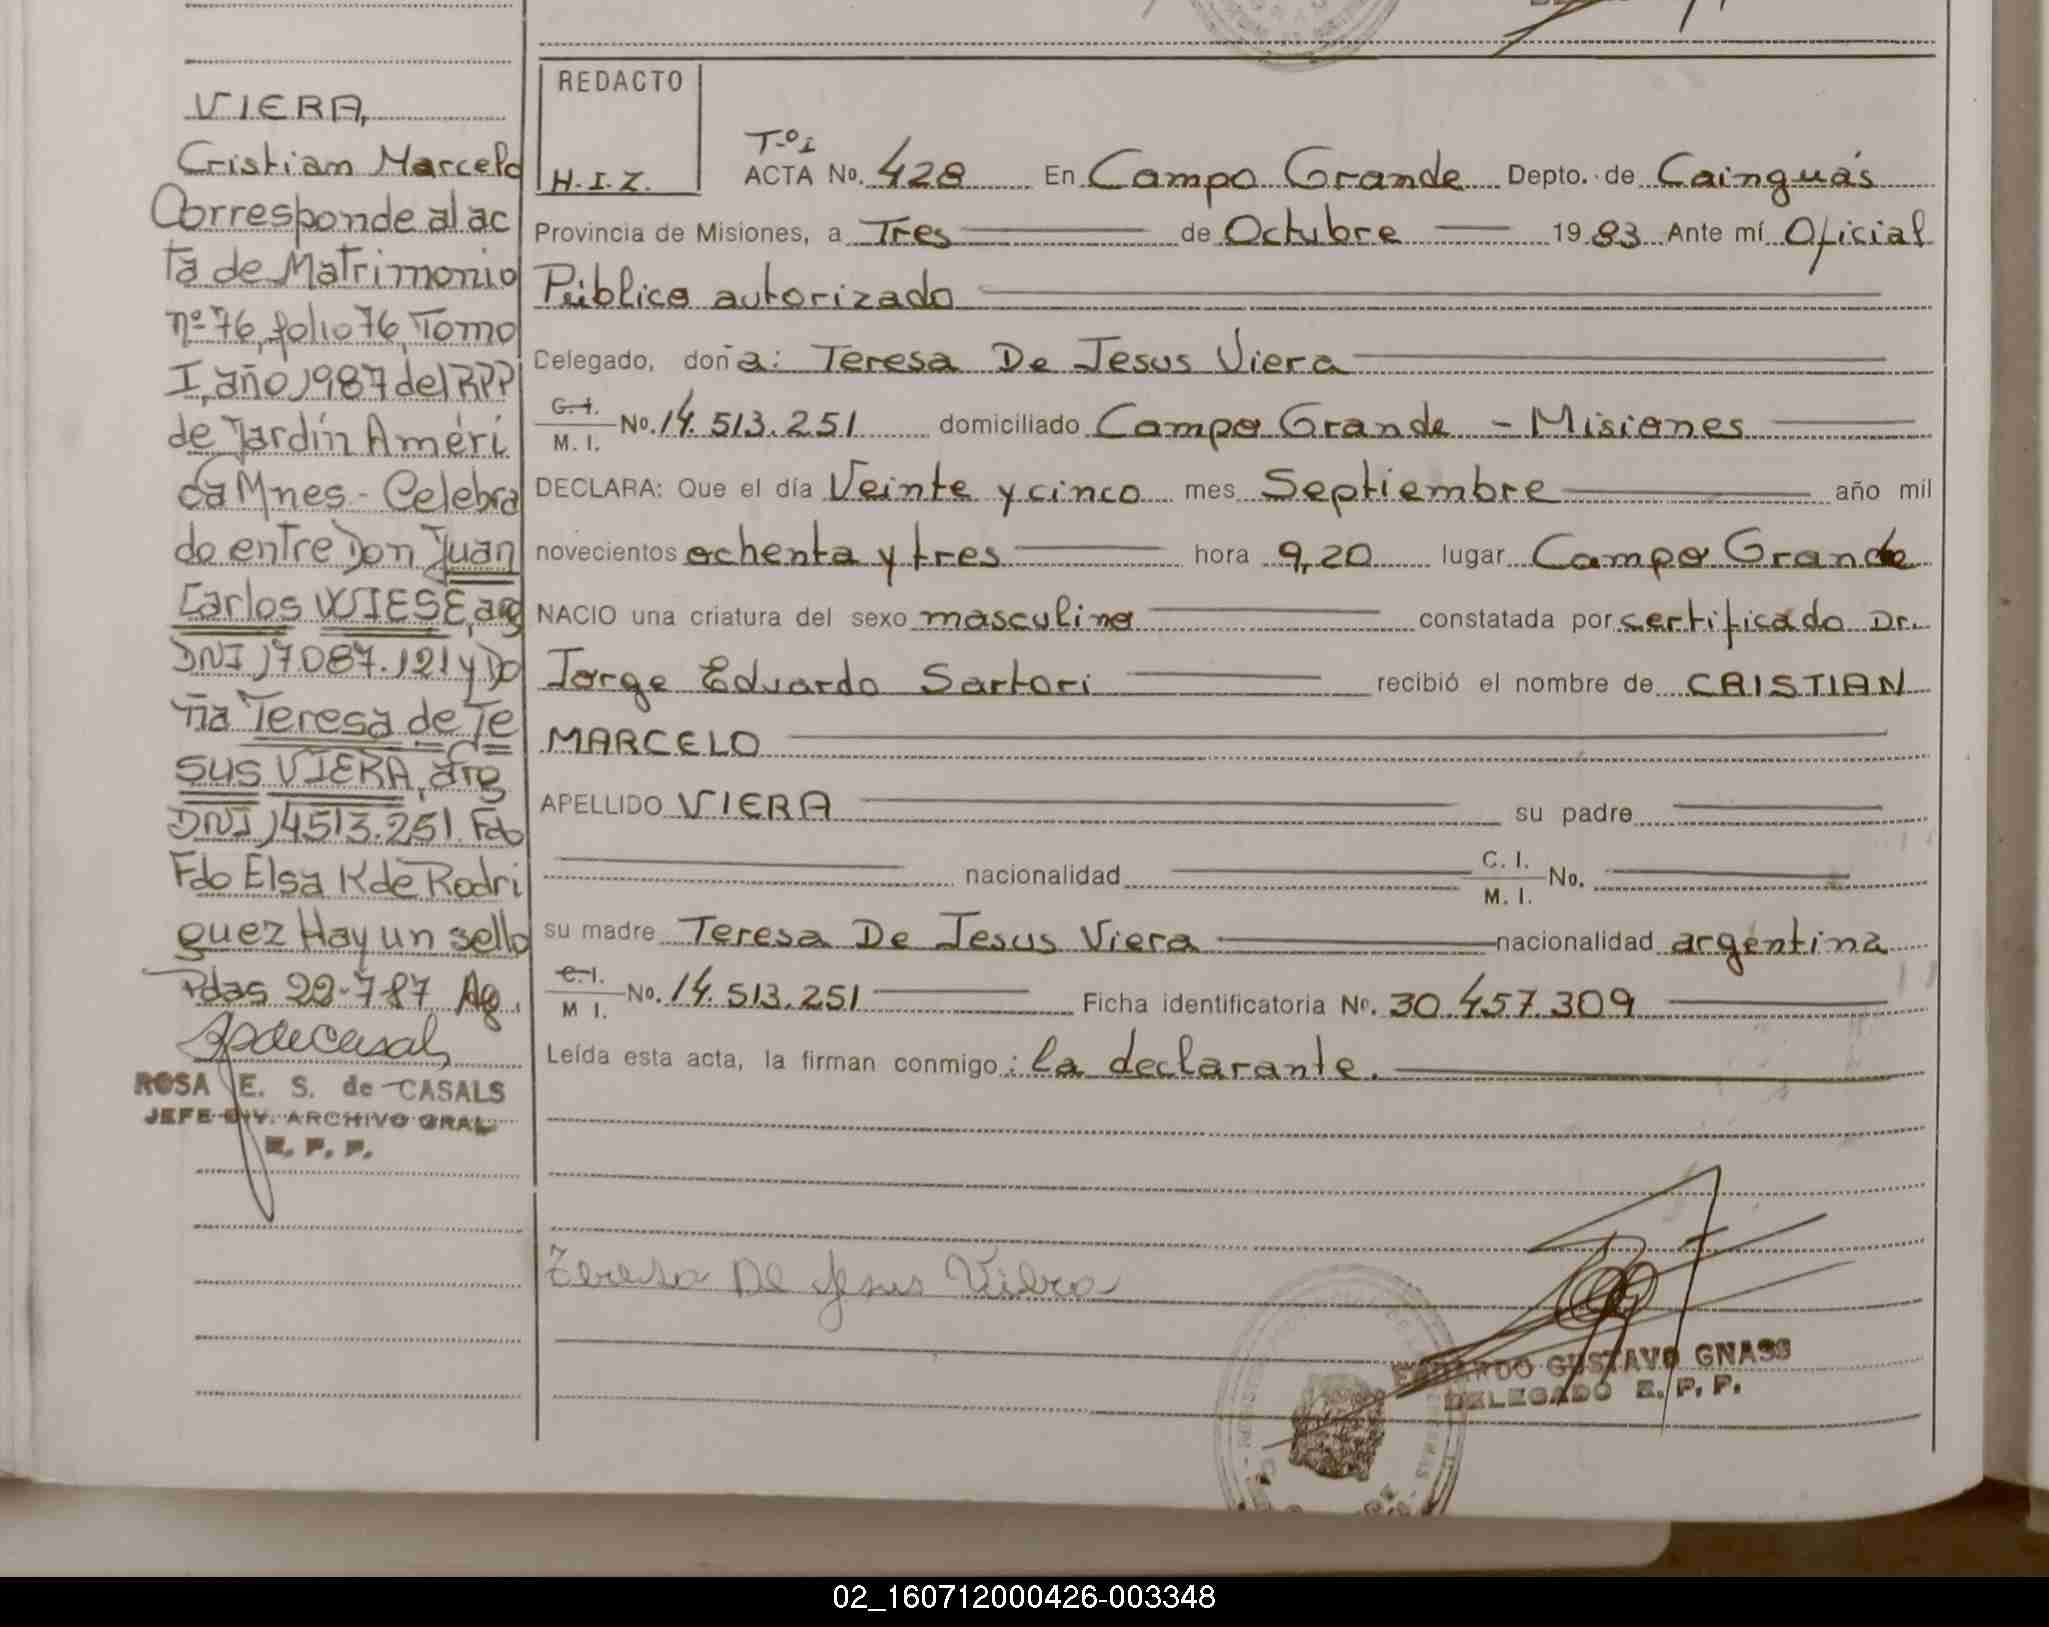 VIERA,
Cristian Marcelo
Corresponde al ac
ta de Matrimonio
nº 76, folio 76, Tomo
I, año 1987 del RPP
de Jardín Améri
ca Mnes.- Celebra
do entre Don Juan
Carlos WIESE, arg
DNI 17.087.121 y Do
ña Teresa de Je
sus VIERA, arg
DNI 14513.251. Fdo
Fdo Elsa K de Rodri
guez Hay un sello
Pdas 22-7-87 Ag.
ROSA E. S. de CASALS
JEFE DIV. ARCHIVO GRAL
R. P. P.
REDACTO
H.I.Z.
Tº I
ACTA No. 428 En Campo Grande Depto. de Cainguás
Provincia de Misiones, a Tres de Octubre 19 83 Ante mí Oficial
Público autorizado
Celegado, doña: Teresa De Jesus Viera
C.I.
M. I. No. 14.513.251 domiciliado Campo Grande - Misiones
DECLARA: Que el día Veinte y cinco mes Septiembre año mil
novecientos ochenta y tres hora 9,20 lugar Campo Grande
NACIO una criatura del sexo masculino constatada por certificado Dr.
Jorge Eduardo Sartori recibió el nombre de CRISTIAN
MARCELO
APELLIDO VIERA su padre
nacionalidad C. I.
M. I. No.
su madre Teresa De Jesus Viera nacionalidad argentina
C.I.
M I. No. 14.513.251 Ficha identificatoria No. 30.457.309
Leída esta acta, la firman conmigo: la declarante.
Teresa De Jesus Viera
EDUARDO GUSTAVO GNASS
DELEGADO R. P. P.
02_160712000426-003348